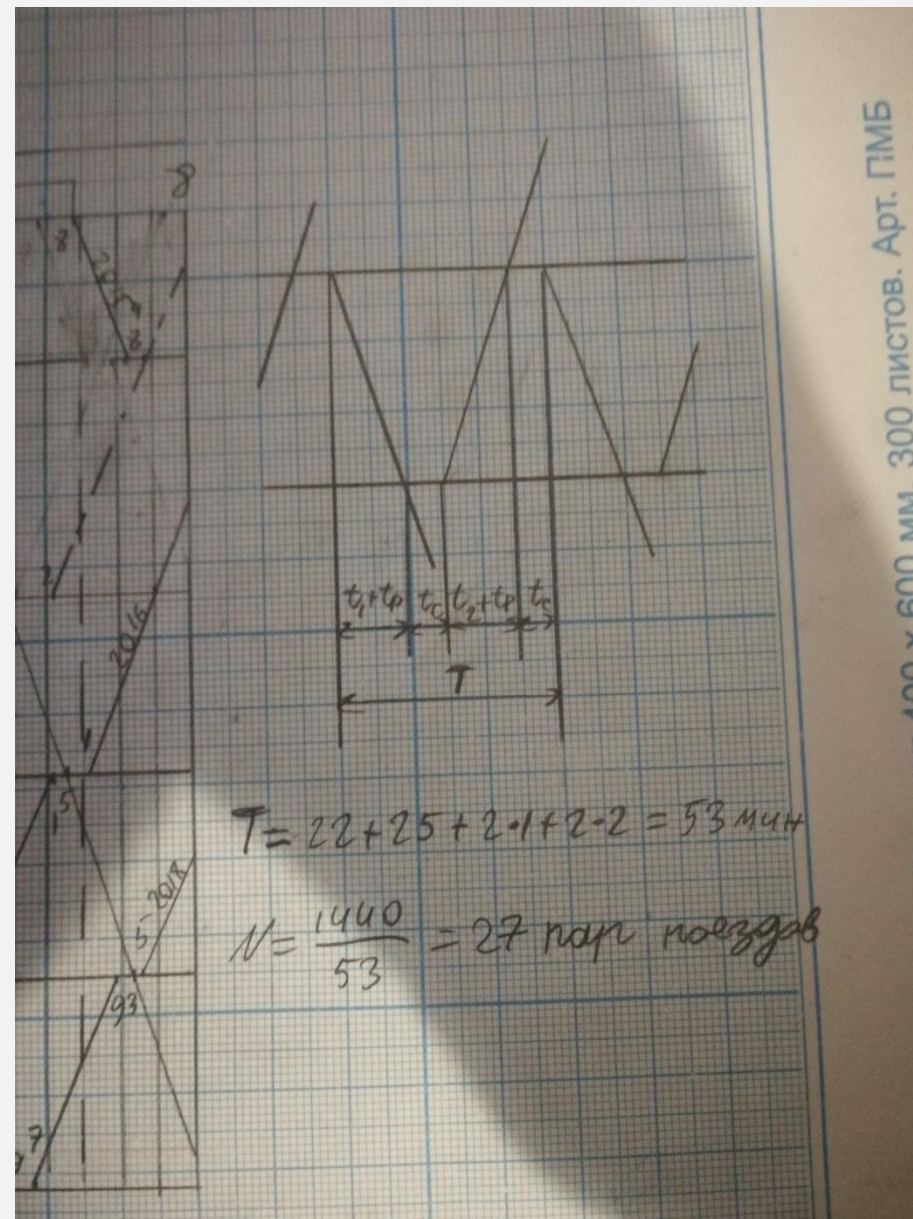 8
8
8
2016
5
5-2018
93
7
t₁+tр tс t₂+tр tс
T
T= 22+25+2·1+2·2 = 53 мин
N= 1440/53 = 27 пар поездов
400 x 600 мм 300 листов. Арт. ПМБ